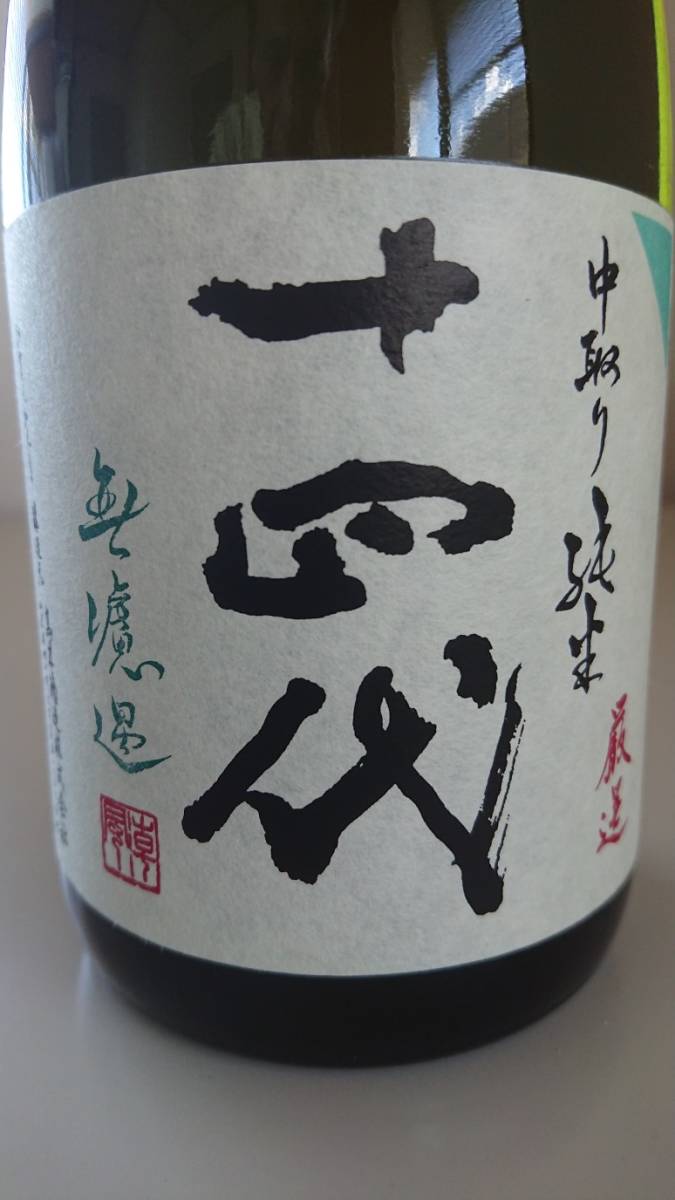 中取り純米
厳選
十四代
無濾過